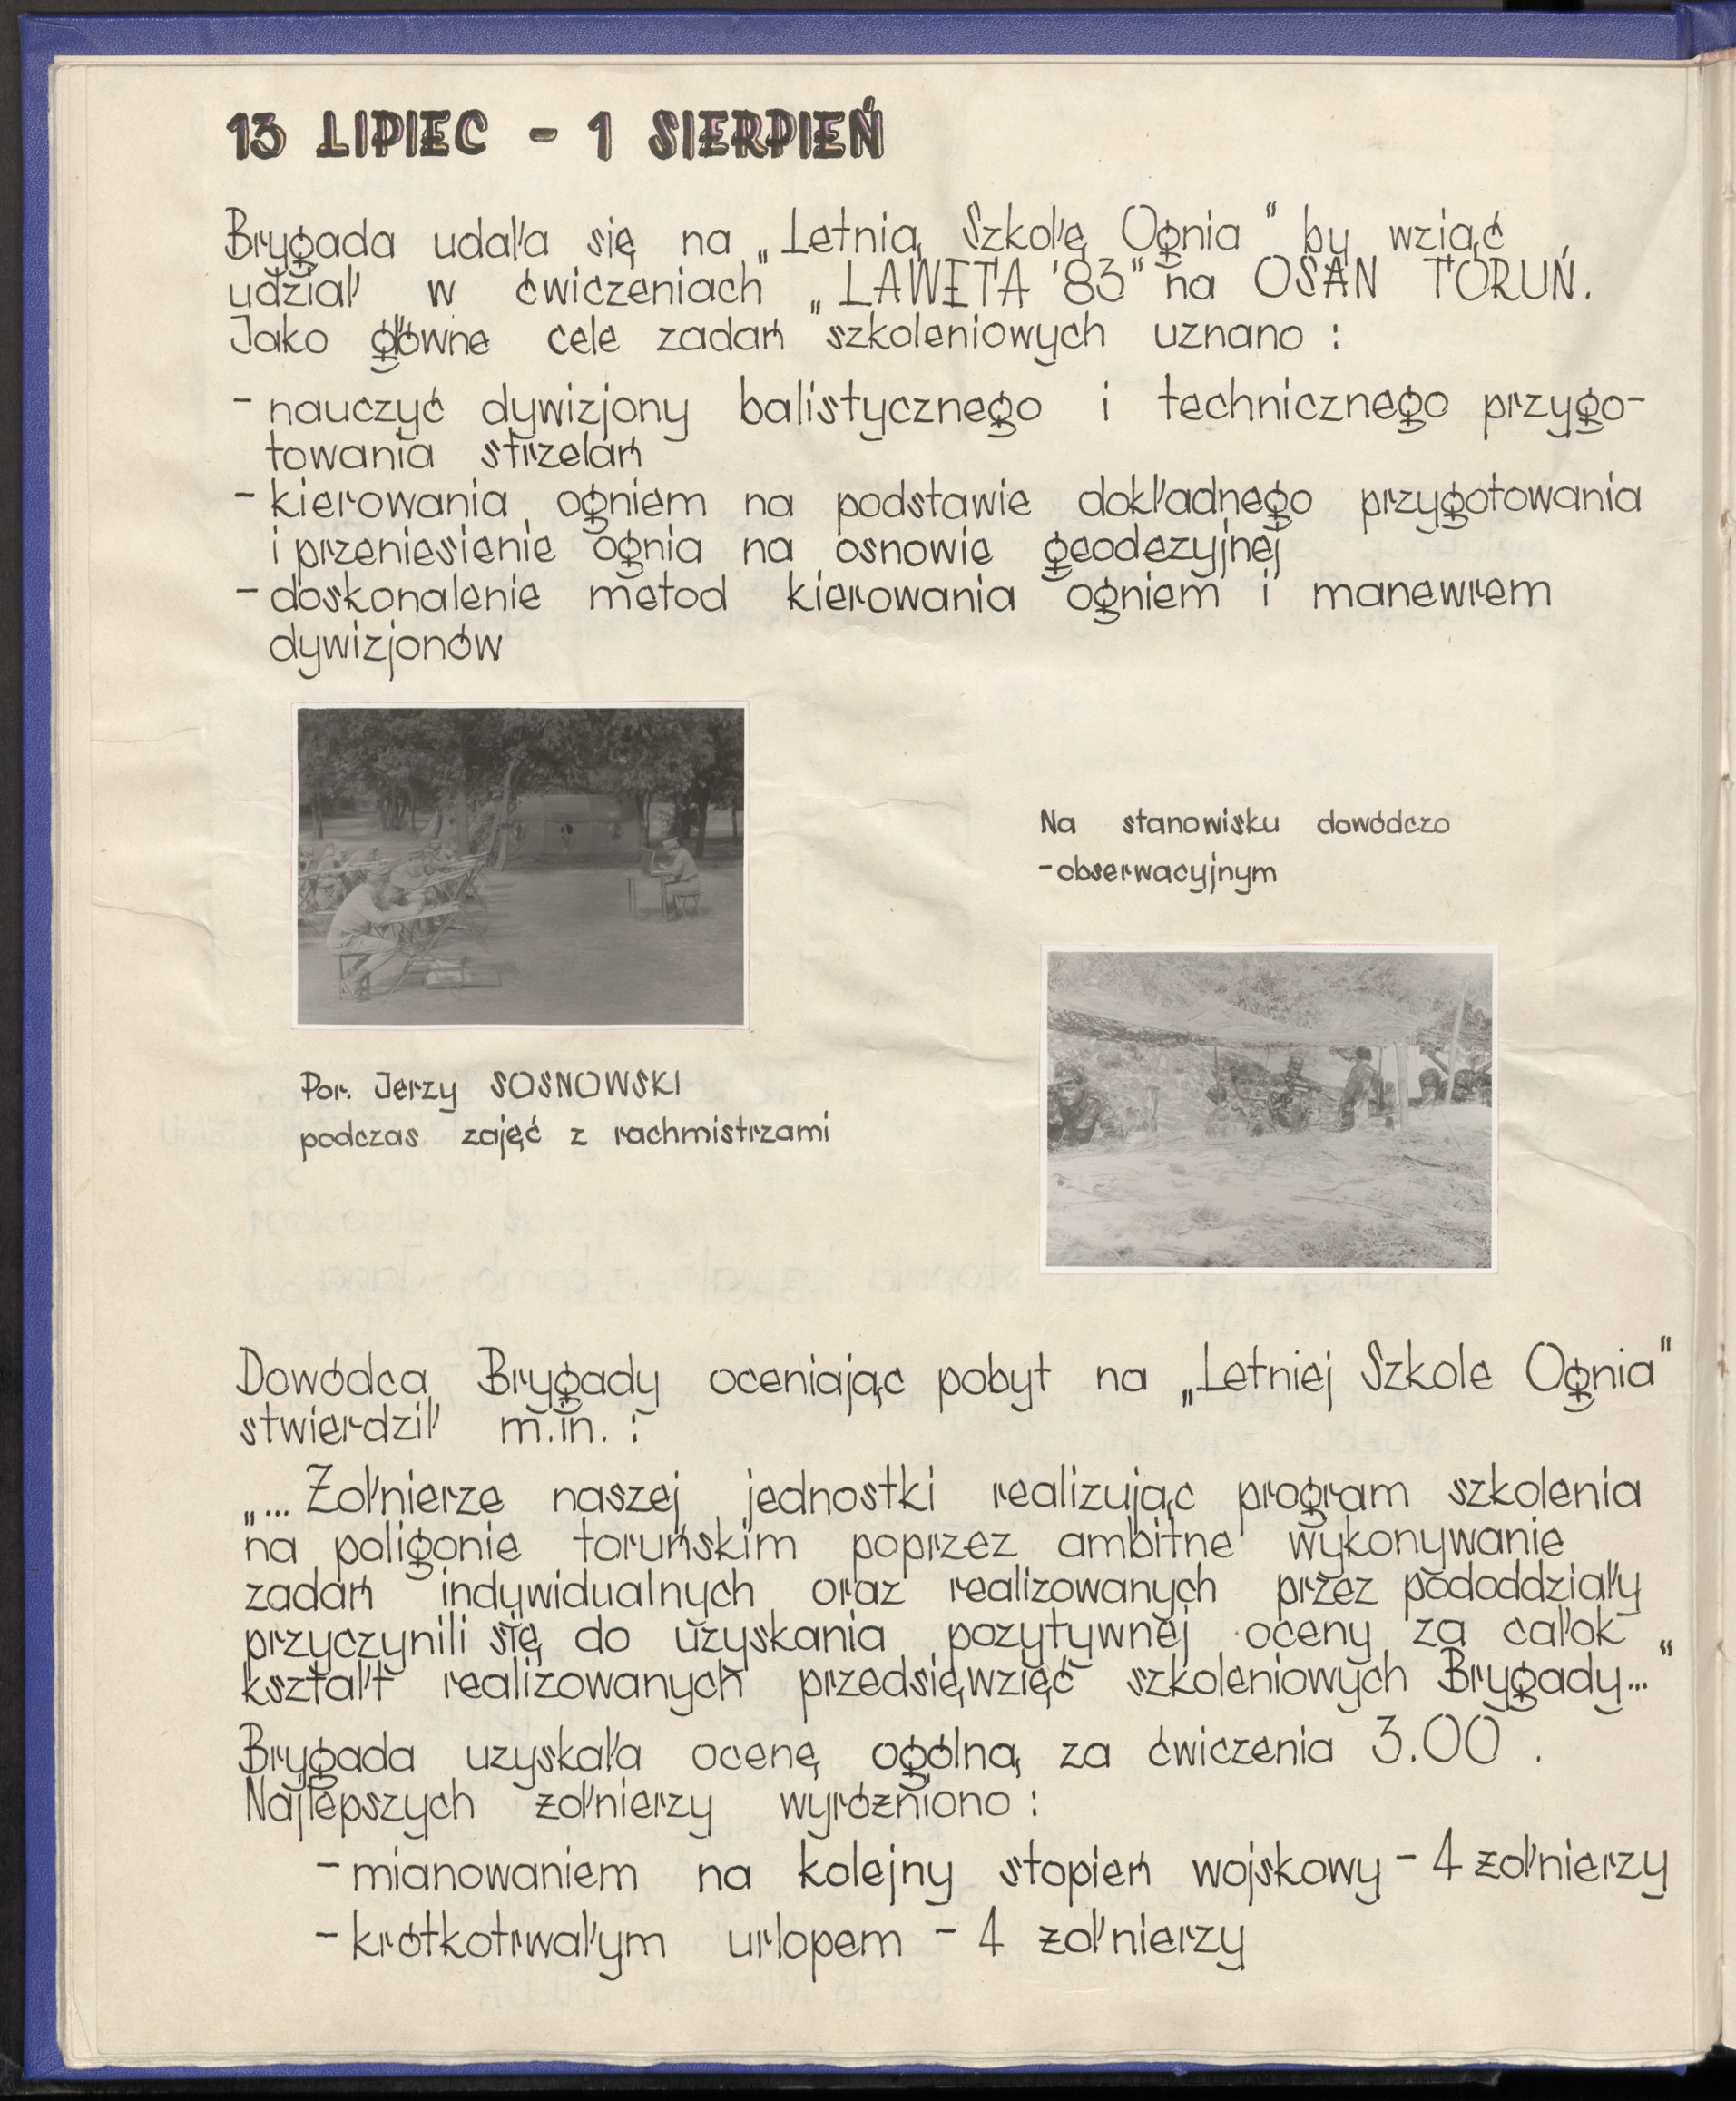 13 LIPIEC - 1 SIERPIEŃ
Brygada udała się na „Letnią Szkołę Ognia" by wziąć
udział w ćwiczeniach „LAWETA '83" na OSAN TORUŃ.
Jako główne cele zadań szkoleniowych uznano :
- nauczyć dywizjony balistycznego i technicznego przygo-
towania strzelań
- kierowania ogniem na podstawie dokładnego przygotowania
i przeniesienie ognia na osnowie geodezyjnej
- doskonalenie metod kierowania ogniem i manewrem
dywizjonów
Na stanowisku dowódczo
-obserwacyjnym
Por. Jerzy SOSNOWSKI
podczas zajęć z rachmistrzami
Dowódca Brygady oceniając pobyt na „Letniej Szkole Ognia"
stwierdził m.in. :
„... Żołnierze naszej jednostki realizując program szkolenia
na poligonie toruńskim poprzez ambitne wykonywanie
zadań indywidualnych oraz realizowanych przez pododdziały
przyczynili się do uzyskania pozytywnej oceny za całok
kształt realizowanych przedsięwzięć szkoleniowych Brygady..."
Brygada uzyskała ocenę ogólną za ćwiczenia 3.00 .
Najlepszych żołnierzy wyróżniono :
- mianowaniem na kolejny stopień wojskowy - 4 żołnierzy
- krótkotrwałym urlopem - 4 żołnierzy